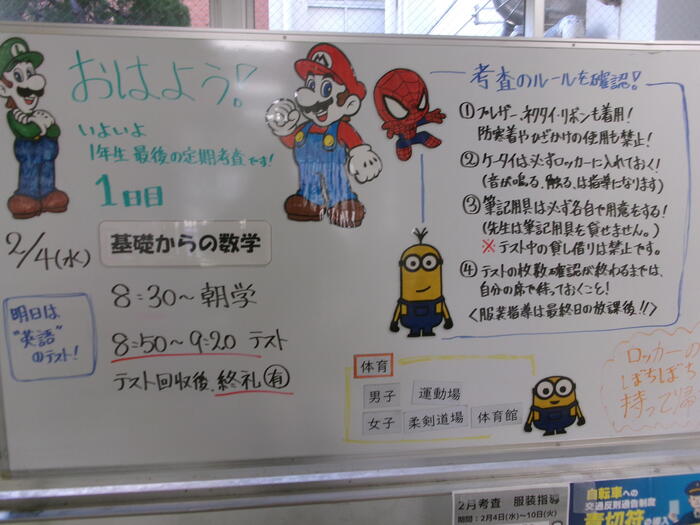 おはよう!
いよいよ
1年生 最後の定期考査です!
1日目
2/4(水)
基礎からの数学
8:30～朝学
8:50～9:20 テスト
テスト回収後、終礼有
明日は
"英語"
のテスト!
考査のルールを確認!
① ブレザー、ネクタイ・リボンも着用!
防寒着やひざかけの使用も禁止!
② ケータイは必ずロッカーに入れておく!
(音が鳴る、触る、は指導になります)
③ 筆記用具は必ず各自で用意をする!
(先生は筆記用具を貸せません。)
※ テスト中の貸し借りは禁止です。
④ テストの枚数確認が終わるまでは、
自分の席で待っておくこと!
<服装指導は最終日の放課後!!>
体育
男子 運動場
女子 柔剣道場 体育館
ロッカーの
ぼちぼち
持って帰
2月考査 服装指導
期間:2月4日(水)～10日(火)
自転車への
交通反則通告制度
青切符